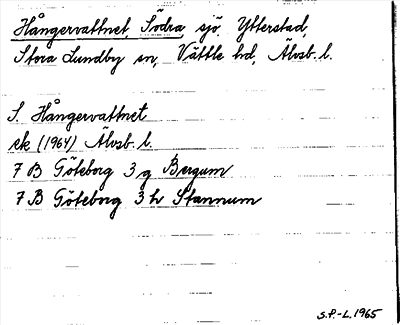 Hångervattnet, Södra, sjö, Ytterstad,
Stora Lundby sn, Vättle hd, Älvsb. l.
S. Hångervattnet
ek (1964) Älvsb. l.
7 B Göteborg 3 g Bergum
7 B Göteborg 3 h Stannum
S.P.-L. 1965